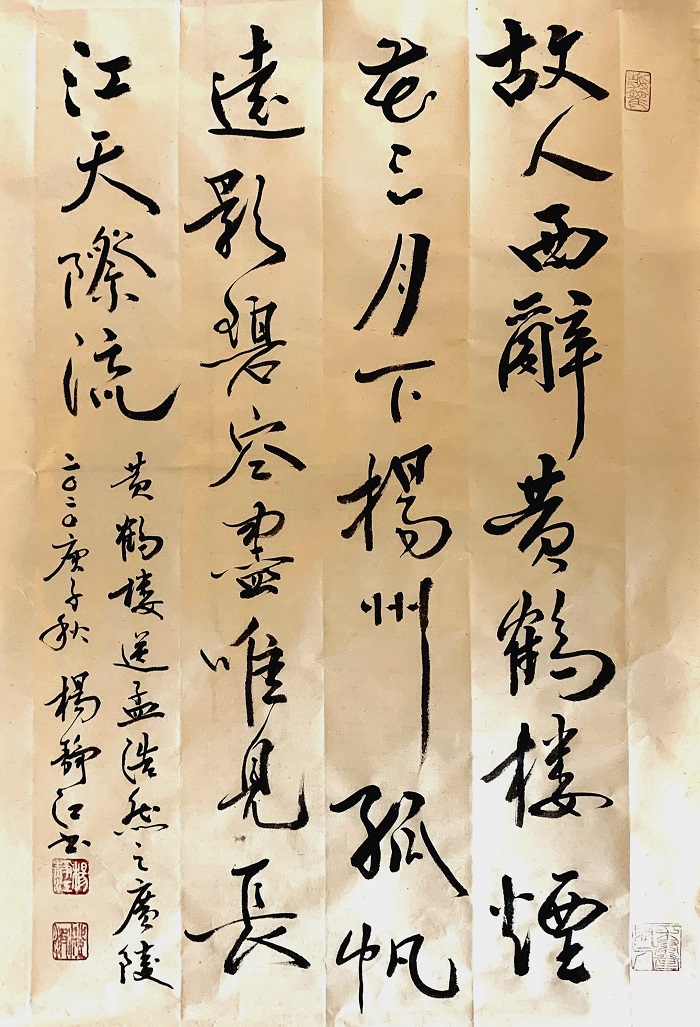 故人西辭黄鶴楼煙
花三月下揚州孤帆
遠影碧空盡唯見長
江天際流
黄鶴楼送孟浩然之廣陵
二〇二〇庚子秋 楊靜江书